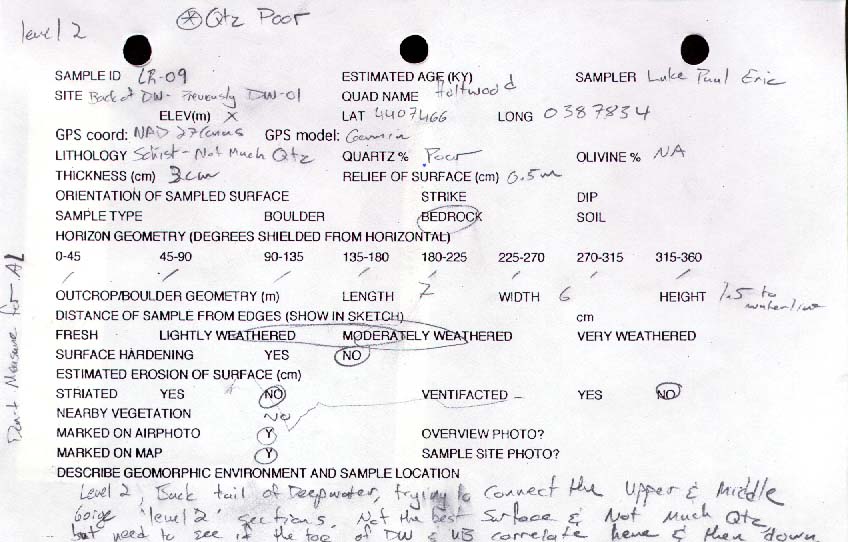 level 2 * Qtz Poor
SAMPLE ID LR-09 ESTIMATED AGE (KY) SAMPLER Luke Paul Eric
SITE Back of DW - Previously DW-01 QUAD NAME Holtwood
ELEV(m) X LAT 4407466 LONG 0387834
GPS coord: NAD 27 Conus GPS model: Garmin
LITHOLOGY Schist - Not Much Qtz QUARTZ % Poor OLIVINE % NA
THICKNESS (cm) 3cm RELIEF OF SURFACE (cm) 0.5m
ORIENTATION OF SAMPLED SURFACE STRIKE DIP
SAMPLE TYPE BOULDER BEDROCK SOIL
HORIZON GEOMETRY (DEGREES SHIELDED FROM HORIZONTAL)
0-45 45-90 90-135 135-180 180-225 225-270 270-315 315-360
/ / / / / / / /
OUTCROP/BOULDER GEOMETRY (m) LENGTH 7 WIDTH 6 HEIGHT 1.5 to waterline
DISTANCE OF SAMPLE FROM EDGES (SHOW IN SKETCH) cm
FRESH LIGHTLY WEATHERED MODERATELY WEATHERED VERY WEATHERED
SURFACE HARDENING YES NO
ESTIMATED EROSION OF SURFACE (cm)
STRIATED YES NO VENTIFACTED - YES NO
NEARBY VEGETATION No
MARKED ON AIRPHOTO Y OVERVIEW PHOTO?
MARKED ON MAP Y SAMPLE SITE PHOTO?
DESCRIBE GEOMORPHIC ENVIRONMENT AND SAMPLE LOCATION
Level 2, Back tail of Deepwater, trying to connect the Upper & Middle
Gorge 'level 2' sections. Not the best Surface & Not Much Qtz
but need to see if the top of DW & UB correlate here & then down
Don't Measure for AL